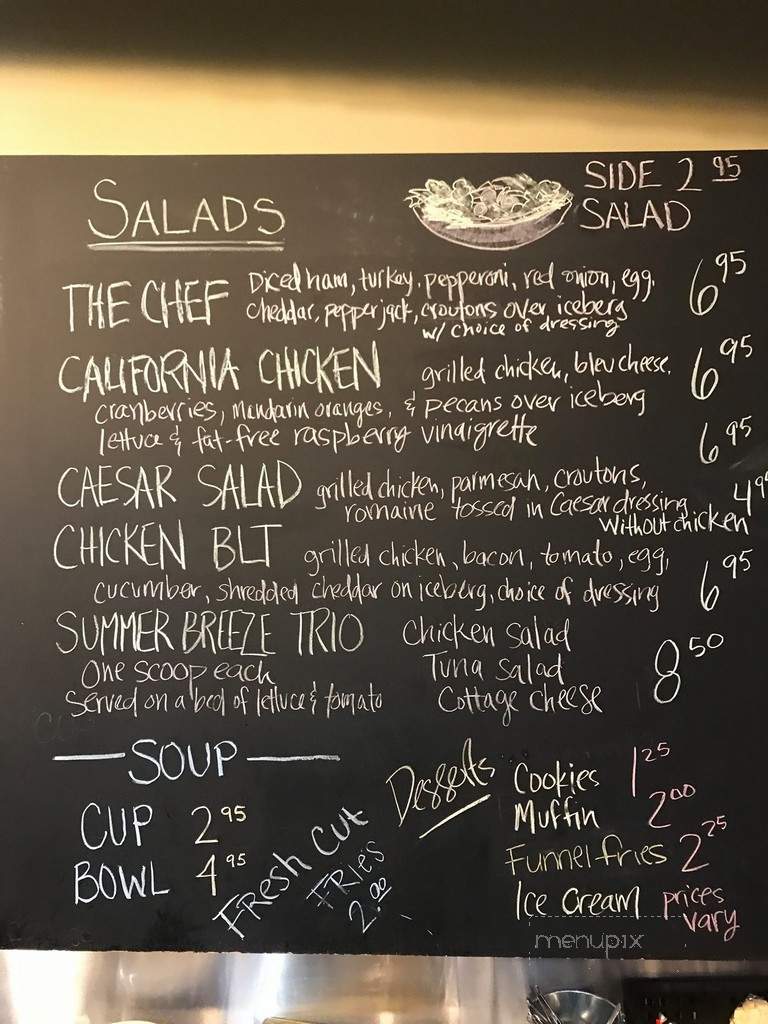 SALADS
SIDE 2 95
SALAD
THE CHEF Diced ham, turkey, pepperoni, red onion, egg, 6 95
cheddar, pepper jack, croutons over iceberg
w/ choice of dressing
CALIFORNIA CHICKEN grilled chicken, bleu cheese, 6 95
cranberries, mandarin oranges, & pecans over iceberg
lettuce & fat-free raspberry vinaigrette
6 95
CAESAR SALAD grilled chicken, parmesan, croutons,
romaine tossed in Caesar dressing 4 95
without chicken
CHICKEN BLT grilled chicken, bacon, tomato, egg, 6 95
cucumber, shredded cheddar on iceberg, choice of dressing
SUMMER BREEZE TRIO Chicken Salad
One scoop each Tuna Salad 8 50
Served on a bed of lettuce & tomato Cottage cheese
SOUP
CUP 2 95
BOWL 4 95
FRESH CUT
FRIES
2.00
Desserts
Cookies 1 25
Muffin 2 00
Funnel fries 2 25
Ice Cream prices
vary
menupix